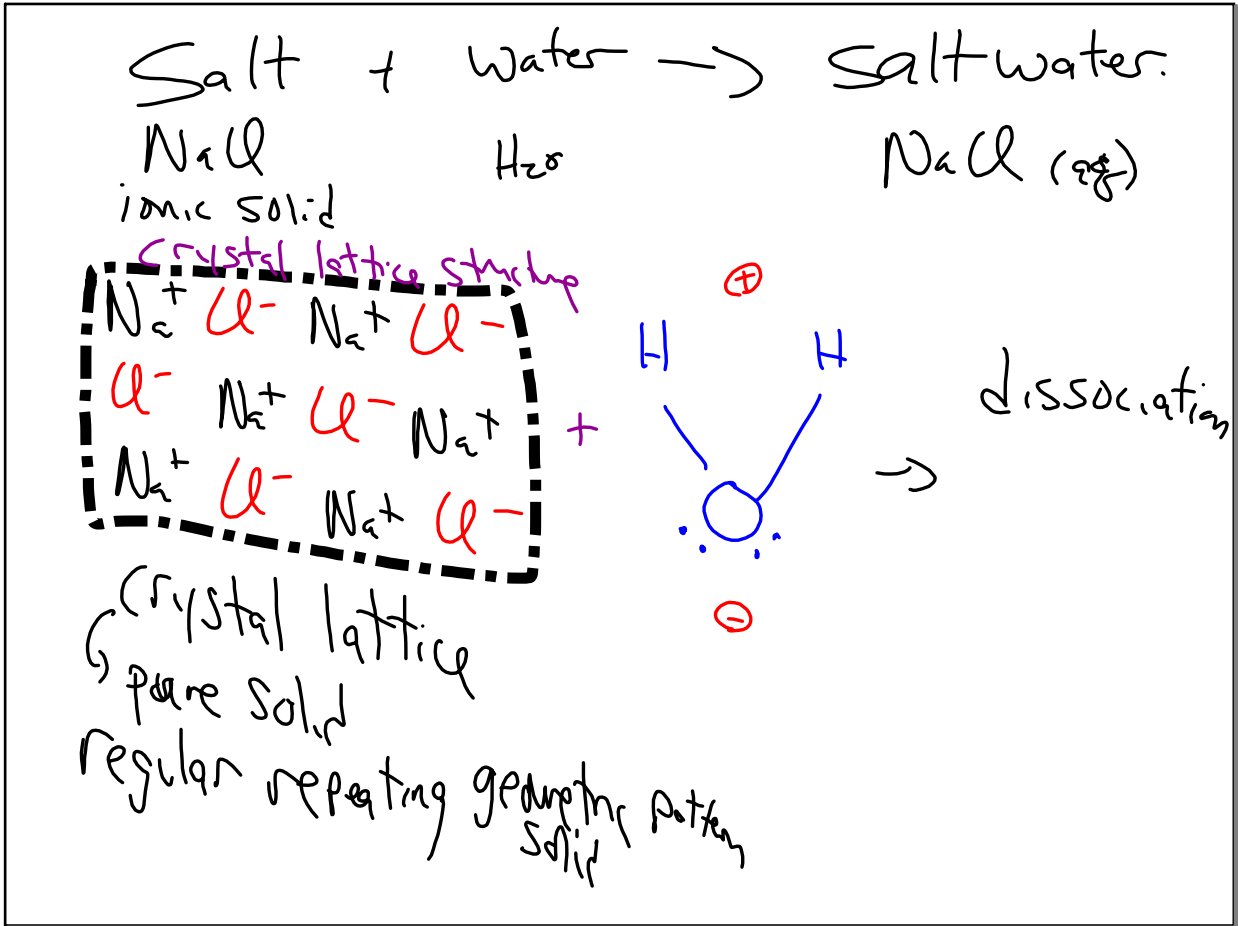 Salt + water → Saltwater.
NaCl H2O NaCl (aq)
ionic solid
Crystal lattice structure
+
Na+ Cl- Na+ Cl-
H H
Cl- Na+ Cl- Na+ + → dissociation
Na+ Cl- Na+ Cl-
O
-
Crystal lattice
pure solid
regular repeating geometric pattern
solid